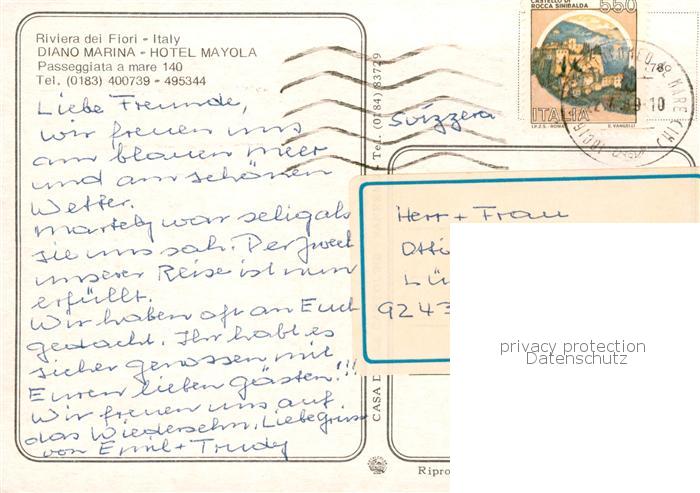 Riviera dei Fiori - Italy
DIANO MARINA - HOTEL MAYOLA
Passeggiata a mare 140
Tel. (0183) 400739 - 495344
Liebe Freunde,
wir freuen uns
am blauen Meer
und am schönen
Wetter.
war selig als
sie uns sah. Der Zweck
unserer Reise ist nun
erfüllt.
Wir haben oft an Euch
gedacht. Ihr habt es
sicher genossen mit
Euren lieben Gästen!!!
Wir freuen uns auf
das Wiedersehn. Liebe Grüsse
von Emil + Trudy
CASA D
Tel. (0184) 83729
CASTELLO DI
ROCCA SINIBALDA
550
ITALIA
I.P.Z.S. - ROMA E. VANGELLI
Svizzera
Herr + Frau
Otti
Lü
9243
privacy protection
Datenschutz
Ripro